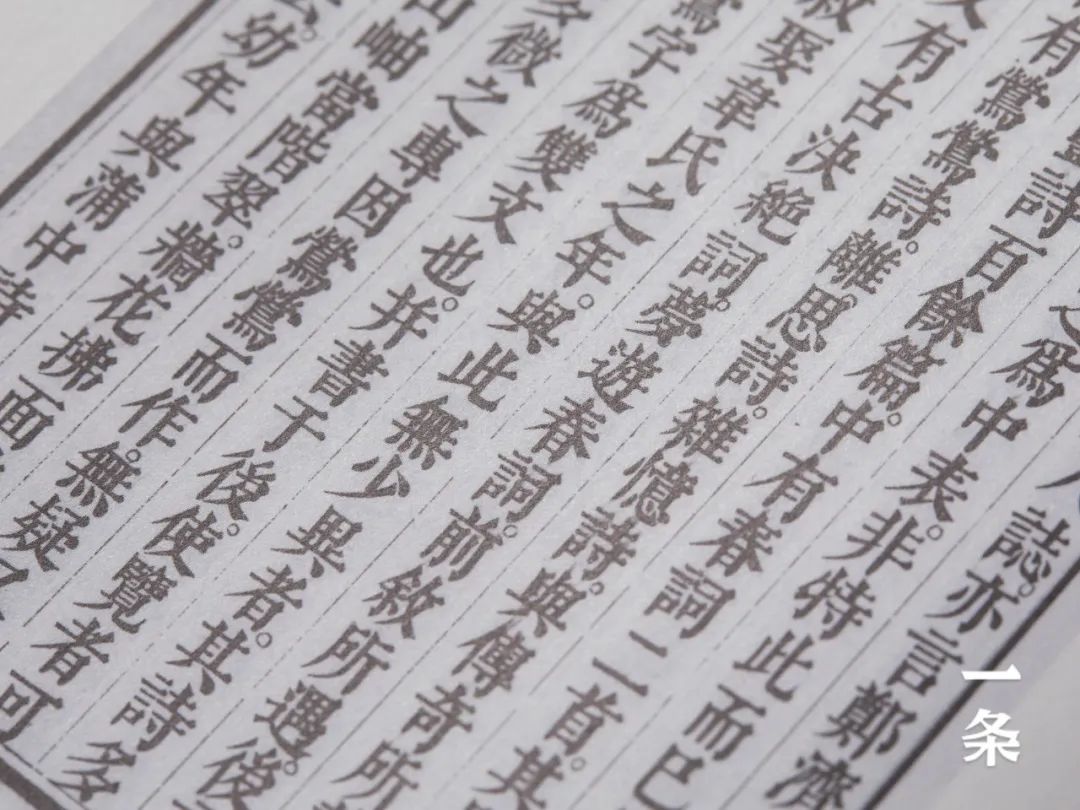 誌。亦言鄭濟
之爲中表。非特此而已
詩百餘篇。中有春詞二首。其
有鶯鶯詩。離思詩。雜憶詩。與傳奇所
有古決絶詞。夢遊春詞。前敘所遇。後
敘娶韋氏之年。與此無少異者。其詩多
鶯字爲雙文也。并書于後。使覽者可
多微之專因鶯鶯而作。無疑
山岫當階翠。牆花拂面
幼年與蒲中
一条